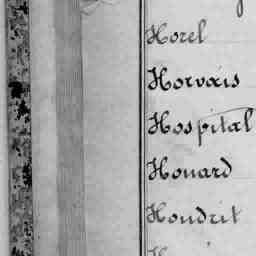 Horel
Horvais
Hospital
Houard
Houdrit